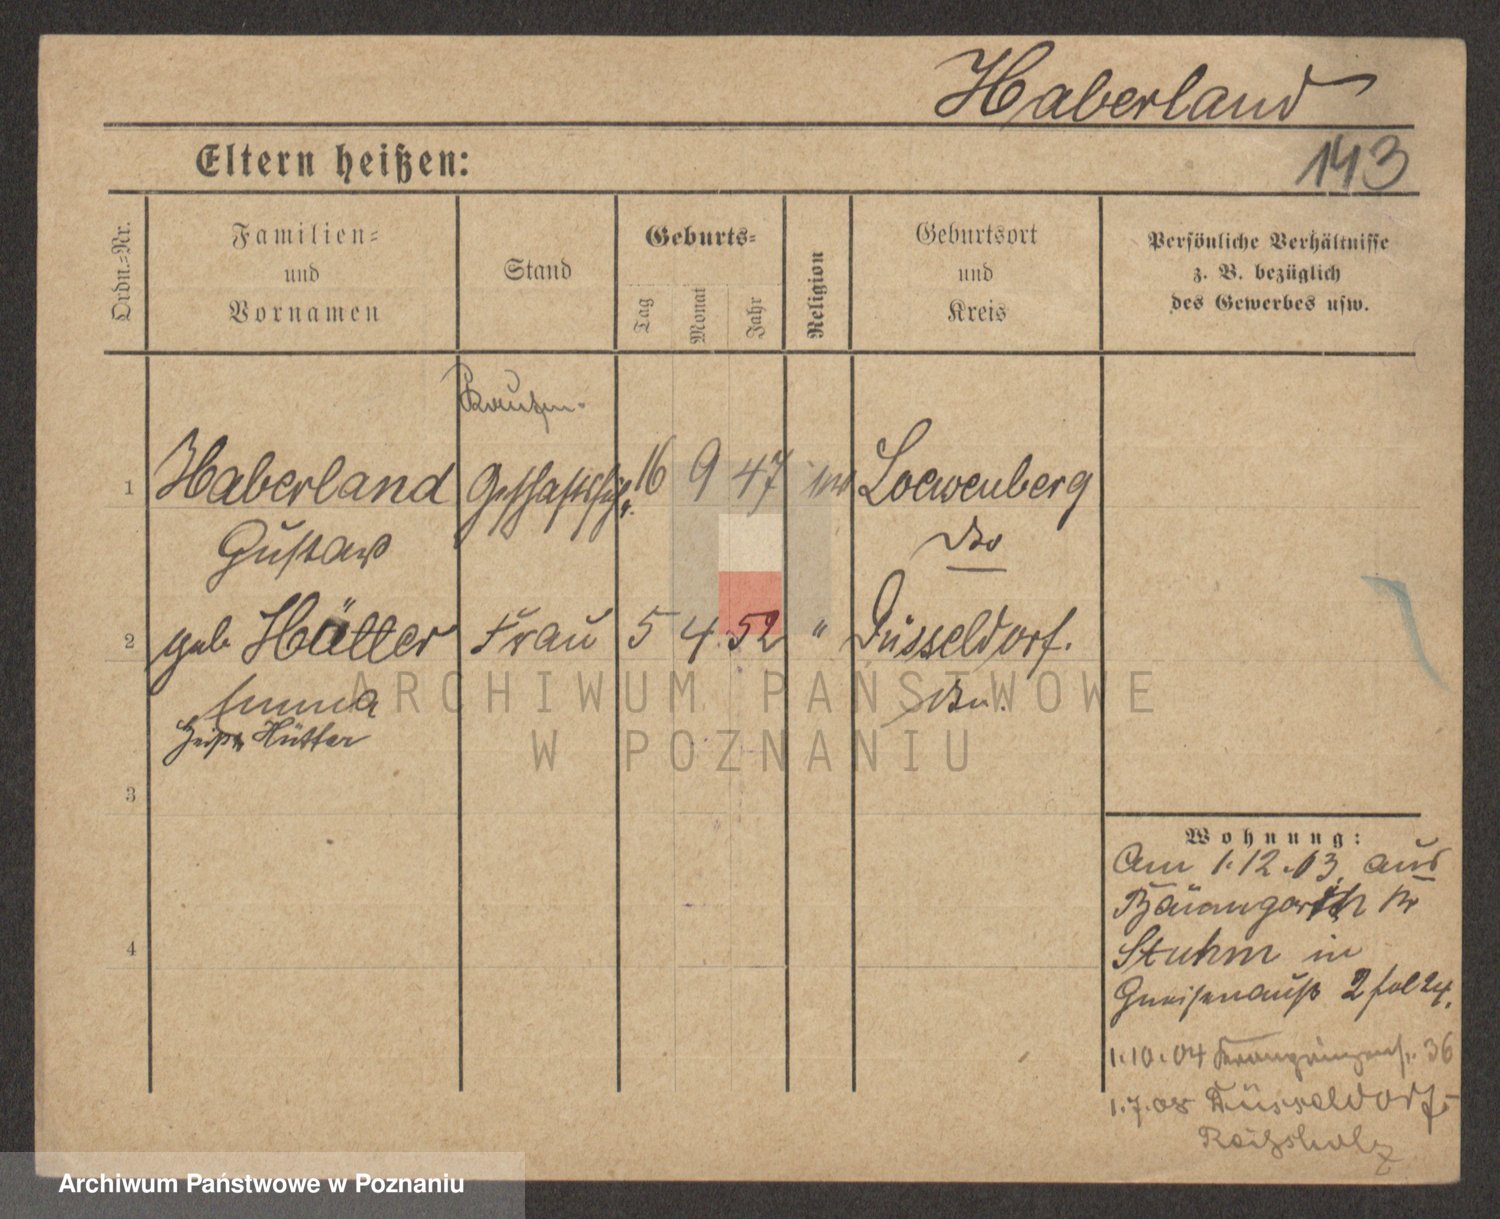 Haberland
143
Eltern heißen:
Ordn.-Nr.
Familien-
und
Vornamen
Stand
Geburts-
Tag
Monat
Jahr
Religion
Geburtsort
und
Kreis
Persönliche Verhältnisse
z. B. bezüglich
des Gewerbes usw.
1 Haberland 16 9 47 Loewenberg
Gustav dto
2 geb Hütter Frau 5 4. 52 " Düsseldorf.
Emma
heißt Hütter
3
4
Wohnung:
Am 1.12.03 aus
Baumgarth Kr
Stuhm in
Gneisenaustr 2 fol 24.
1.10.04 Kronprinzenstr. 36
1.7.08 Düsseldorf-
Reisholz
ARCHIWUM PAŃSTWOWE
W POZNANIU
Archiwum Państwowe w Poznaniu